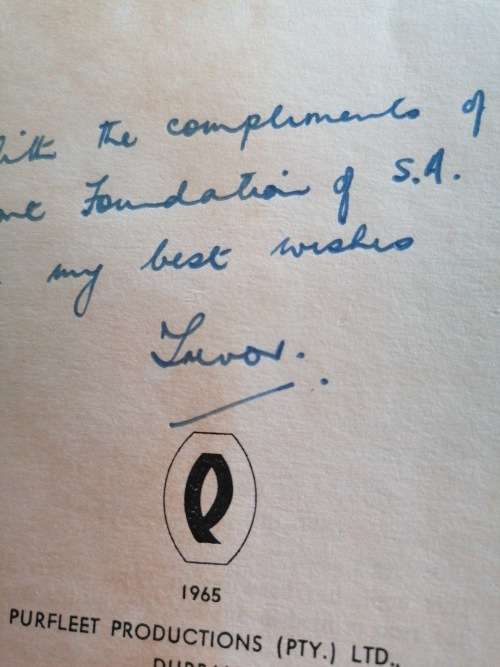 With the compliments of
Foundation of S.A.
my best wishes
Trevor.
1965
PURFLEET PRODUCTIONS (PTY.) LTD.,